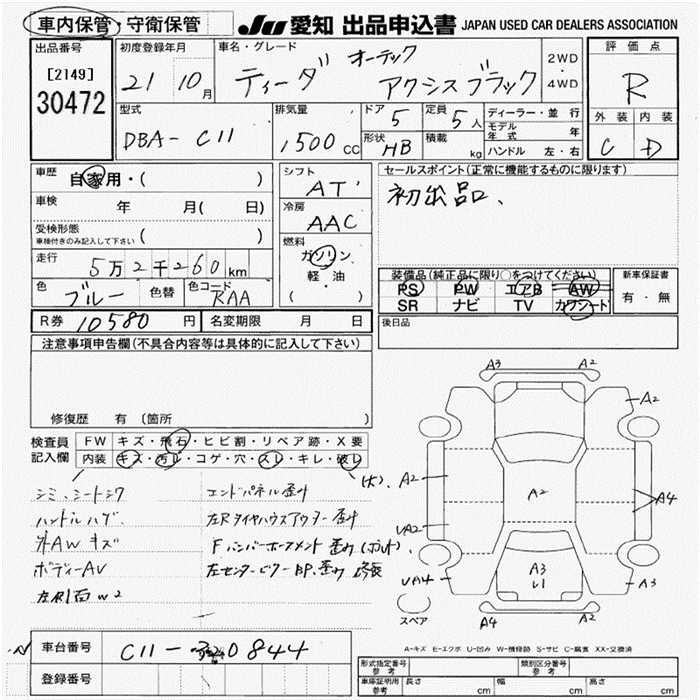 車内保管・守衛保管 JU 愛知 出品申込書 JAPAN USED CAR DEALERS ASSOCIATION
出品番号 初度登録年月 車名・グレード 評価点
[2149] 21 10月 ティーダ オーテック アクシスブラック 2WD・4WD R
30472
型式 排気量 ドア 定員 ディーラー・並行 外装 内装
DBA-C11 1500cc 5 5人 モデル年式 年 C D
形状 HB 積載 kg ハンドル 左・右
車歴 自家用・( ) シフト AT セールスポイント(正常に機能するものに限ります)
車検 年 月( 日) 冷房 AAC 初出品、
受検形態 車検付きのみ記入して下さい ( )
燃料 ガソリン
走行 5万2千260km 軽・油 装備品(純正品に限り○をつけてください) 新車保証書
色 ブルー 色替 色コード RAA ( ) PS PW エアB AW 有・無
SR ナビ TV カワシート
R券 10580円 名変期限 月 日 後日品
注意事項申告欄(不具合内容等は具体的に記入して下さい)
修復歴 有 〔箇所 〕
検査員記入欄 FW キズ・飛石・ヒビ割・リペア跡・X要
内装 キズ・汚レ・コゲ・穴・スレ・キレ・破レ
シミ、シートシワ エンドパネル歪み
ハンドルハゲ 左Rタイヤハウスアウター歪み
外AWキズ Fバンパーホースメント歪み
ボディーAV 左センターピラー
A3 A2
A2
A2 A2 A4
UA2
UA4 A3 A3
U1
スペア A4 A2
A-キズ E-エクボ U-凹み W-補修跡 S-サビ C-腐食 XX-交換済
車台番号 C11- 0844
登録番号
形式指定番号 参考 類別区分番号 参考
車庫証明用 参考 長さ cm 幅 cm 高さ cm